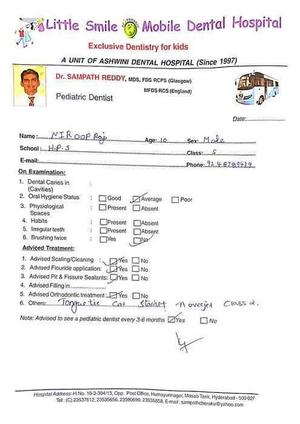 Little Smile Mobile Dental Hospital
Exclusive Dentistry for kids
A UNIT OF ASHWINI DENTAL HOSPITAL (Since 1997)
Dr. SAMPATH REDDY, MDS, FDS RCPS (Glasgow)
MFDS RCS (England)
Pediatric Dentist
Date:
Name: NIROOP Raj Age: 10 Sex: Male
School: H.P.S Class: 5
E-mail: Phone:
On Examination:
1. Dental Caries in :
(Cavities)
2. Oral Hygiene Status : Good Average Poor
3. Physiological : Present Absent
Spaces
4. Habits : Present Absent
5. Irregular teeth : Present Absent
6. Brushing twice : Yes No
Adviced Treatment:
1. Advised Scaling/Cleaning : Yes No
2. Advised Flouride application: Yes No
3. Advised Pit & Fissure Sealants: Yes No
4. Advised Filling in
5. Advised Orthodontic treatment Yes No
6. Others: Tongue tie Class 2.
Note: Advised to see a pediatric dentist every 3-6 months Yes No
Hospital Address: H.No. 10-3-394/13, Opp. Post Office, Humayunnagar, Masab Tank, Hyderabad - 500 027
Tel: (C) 23537612, 23530656, 23590699, 23535858, E-mail: sampathcheruku@yahoo.com